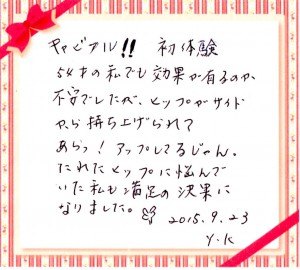 キャビアル!! 初体験
54才の私でも効果が有るのか、
不安でしたが、ヒップがサイド
から持ち上げられて
あらっ!アップしてるじゃん。
たれたヒップに悩んで
いた私も満足の決果に
なりました。
2015.9.23
Y.K